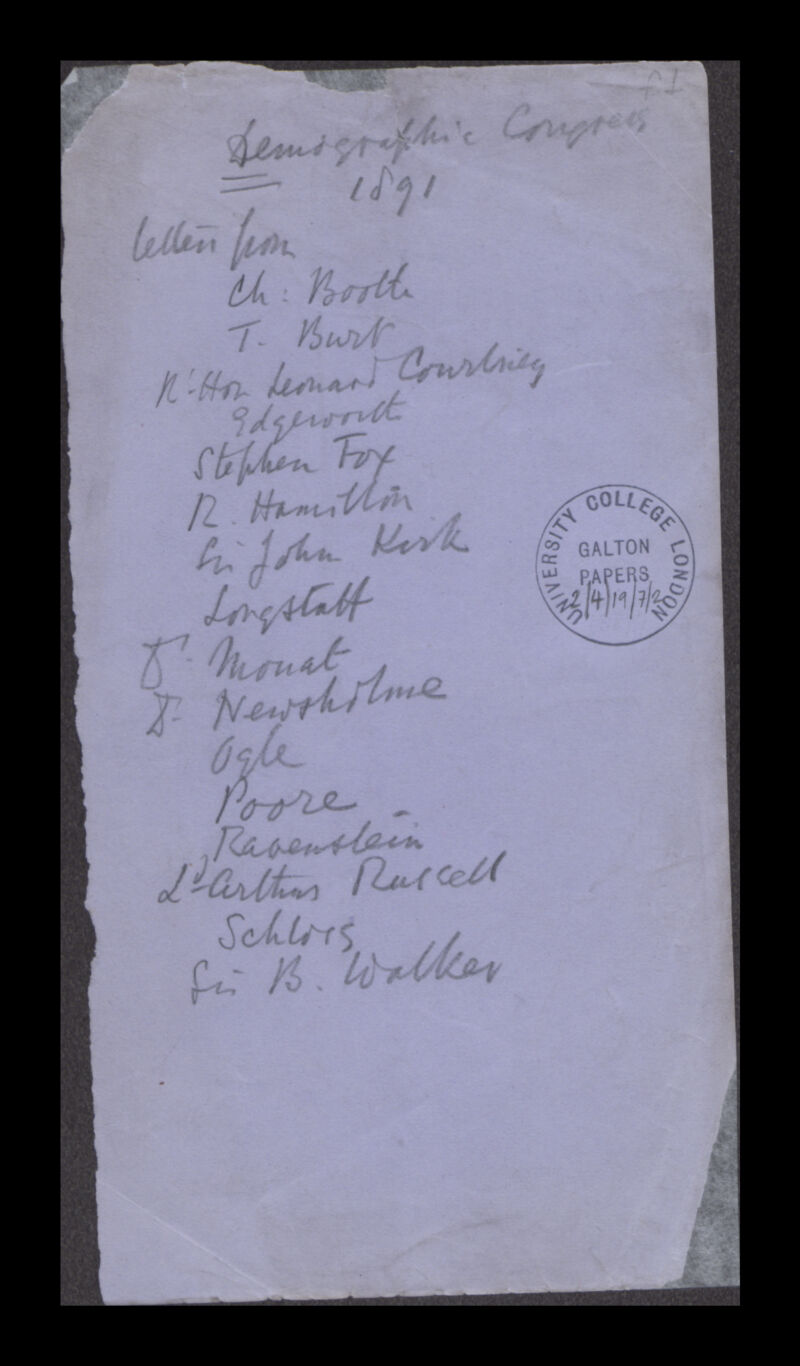 f1
Demographic Congress
1891
letters from
Ch: Booth
T. Burt
Rt Hon Leonard Courtney
Edgeworth
Stephen Fox
R. Hamilton
Sir John Kirk
Longstaff
Dr Mouat
Dr Newsholme
Ogle
Poore
Ravenstein
Ld Arthur Russell
Schloss
Sir B. Walker
UNIVERSITY COLLEGE LONDON
GALTON
PAPERS
2/4/19/7/2